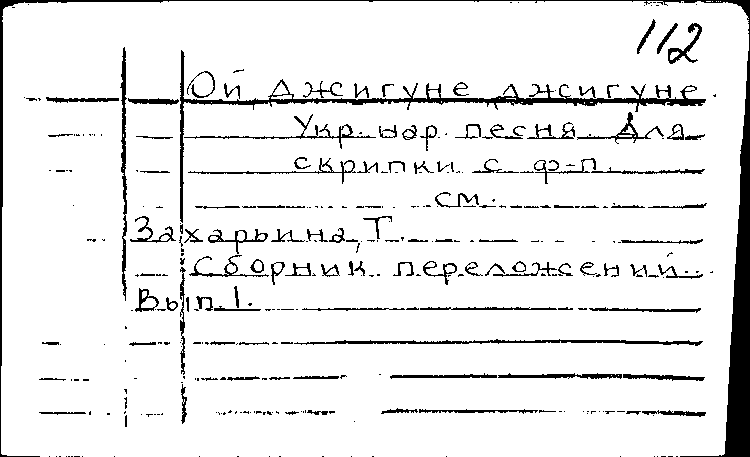 112
Ой, джигуне, джигуне.
Укр. нар. песня. Для
скрипки с ф-п.
см.
Захарьина, Т.
Сборник переложений.
Вып. 1.